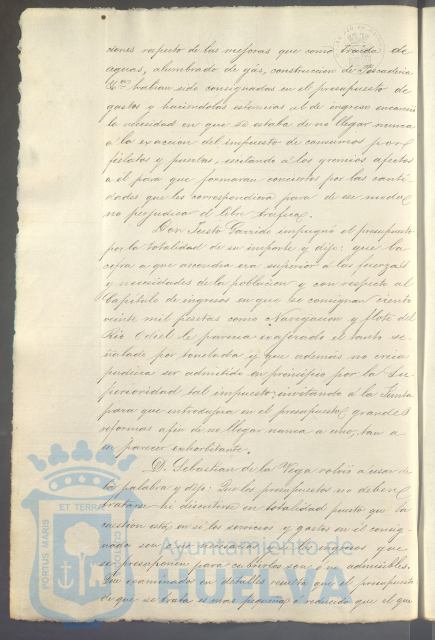 ciones respecto de las mejoras que como traida de
aguas, alumbrado de gás, construccion de Pescaderia
habian sido consignadas en el presupuesto de
gastos y haciendolas estensivas al de ingresos
la necesidad en que se estaba de no llegar nunca
a la exaccion del impuesto de consumos por
fielatos y puertas, escitando á los gremios afectos
a el para que formaran conciertos por las canti-
dades que les correspondiera para de ese modo
no perjudicar el libre trafico.
Don Justo Garrido impugnó el presupuesto
por la totalidad de su importe y dijo: que la
cifra a que ascendia era superior á las fuerzas
y necesidades de la poblacion y con respecto al
Capitulo de ingresos en que se consignan ciento
veinte mil pesetas como Navegacion y flote del
Rio Odiel le parecia exajerado el tanto se-
ñalado por tonelada y que además no creia
pudiera ser admitido en principio por la Su-
perioridad tal impuesto, invitando á la Junta
para que introdujera en el presupuesto grandes
reformas afin de no llegar nunca a uno, tan a
su parecer exhorbitante.
D. Sebastian de la Vega volvió a usar de
la palabra y dijo: Que los presupuestos no deben
tratarse ni discutirse en totalidad puesto que la
cuestion está en si los servicios y gastos en él consig-
nados son ó no necesarios y si los ingresos que
se proponen para cubrirlos son ó no admisibles.
Que examinado en detalles resulta que el presupuesto
de que se trata es mas pequeño ó reducido que el que
PORTUS MARIS
ET TERRAE
CUSTODIA
Ayuntamiento de
HUELVA